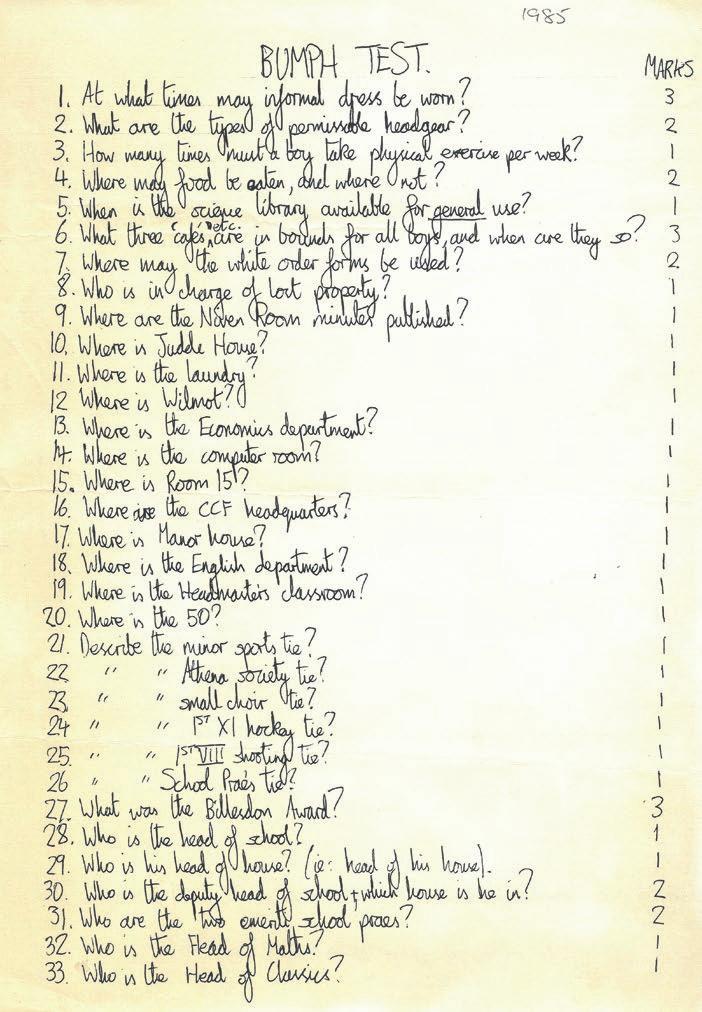 1985
BUMPH TEST.
MARKS
1. At what times may informal dress be worn? 3
2. What are the types of permissable headgear? 2
3. How many times must a boy take physical exercise per week? 1
4. Where may food be eaten, and where not? 2
5. When is the science library available for general use? 1
6. What three 'cafés' etc. are in bounds for all boys, and when are they so? 3
7. Where may the white order forms be used? 2
8. Who is in charge of lost property? 1
9. Where are the Niven Room minutes published? 1
10. Where is Judde House? 1
11. Where is the laundry? 1
12 Where is Wilmot? 1
13. Where is the Economics department? 1
14. Where is the computer room? 1
15. Where is Room 15? 1
16. Where are the CCF headquarters? 1
17. Where is Manor house? 1
18. Where is the English department? 1
19. Where is the Headmaster's classroom? 1
20. Where is the 50? 1
21. Describe the minor sports tie? 1
22 " " Athena society tie? 1
23. " " small choir tie? 1
24 " " 1ST XI hockey tie? 1
25. " " 1ST VIII shooting tie? 1
26 " " School Praes tie? 1
27. What was the Billesdon Award? 3
28. Who is the head of school? 1
29. Who is his head of house? (ie: head of his house). 1
30. Who is the deputy head of school + which house is he in? 2
31. Who are the two emeriti school praes? 2
32. Who is the Head of Maths? 1
33. Who is the Head of Classics? 1